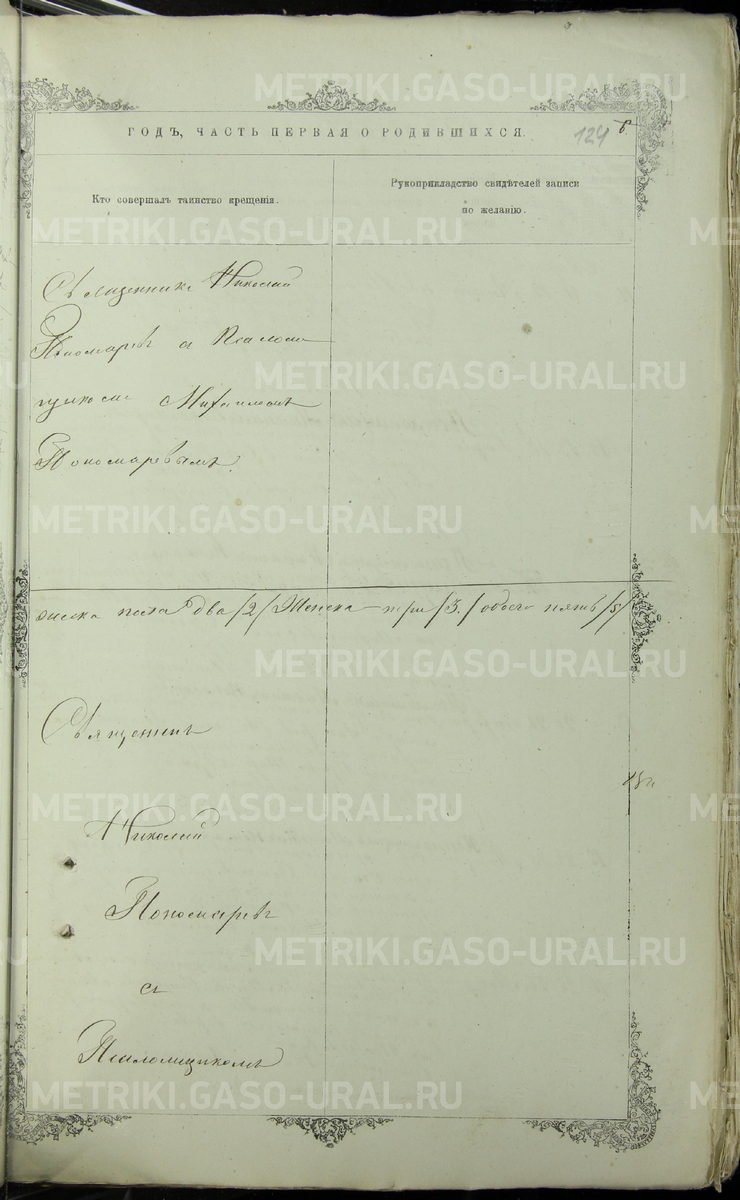 METRIKI.GASO-URAL.RU
ГОДЪ, ЧАСТЬ ПЕРВАЯ О РОДИВШИХСЯ.
124
Кто совершалъ таинство крещенія.
Рукоприкладство свидѣтелей записи
по желанію.
Священникъ Николай
Пономаревъ съ Псалом
щикомъ Михаиломъ
Пономаревымъ.
пола два /2/ Женска три /3./ обоего пять /5/
Священникъ
Николай
Пономаревъ
съ
Псаломщикомъ